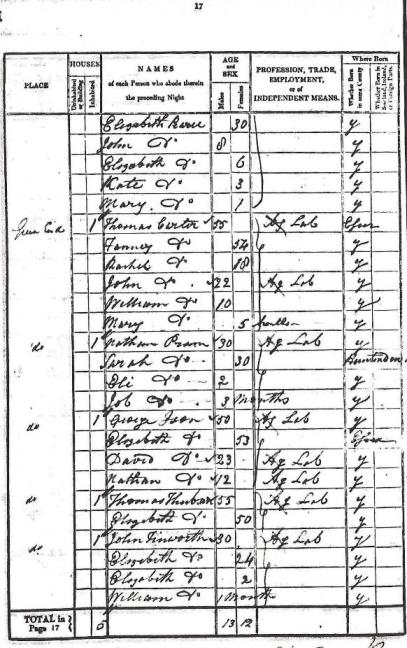 17
PLACE
HOUSES
Uninhabited or Building
Inhabited
NAMES
of each Person who abode therein
the preceding Night
AGE
and
SEX
Males
Females
PROFESSION, TRADE,
EMPLOYMENT,
or of
INDEPENDENT MEANS.
Where Born
Whether Born in same County
Whether Born in Scotland, Ireland, or Foreign Parts.
Elizabeth 30 y
John Do 8 y
Elizabeth Do 6 y
Kate Do 3 y
Mary Do 1 y
Green End 1 Thomas Carter 55 Ag Lab
Fanney Do 54 y
Rachel Do 18 y
John Do 22 Ag Lab y
William Do 10 y
Mary Do 5 y
do 1 Nathan 30 Ag Lab y
Sarah Do 30
Eli Do 2 y
Job Do 3 Months y
do 1 George Ison 50 Ag Lab y
Elizabeth Do 53
David Do 23 Ag Lab y
Nathan Do 12 Ag Lab y
do 1 Thomas 55 Ag Lab y
Elizabeth Do 50 y
do 1 John Tinworth 30 Ag Lab y
Elizabeth Do 24 y
Elizabeth Do 2 y
William Do 1 Month y
TOTAL in
Page 17 5 13 12